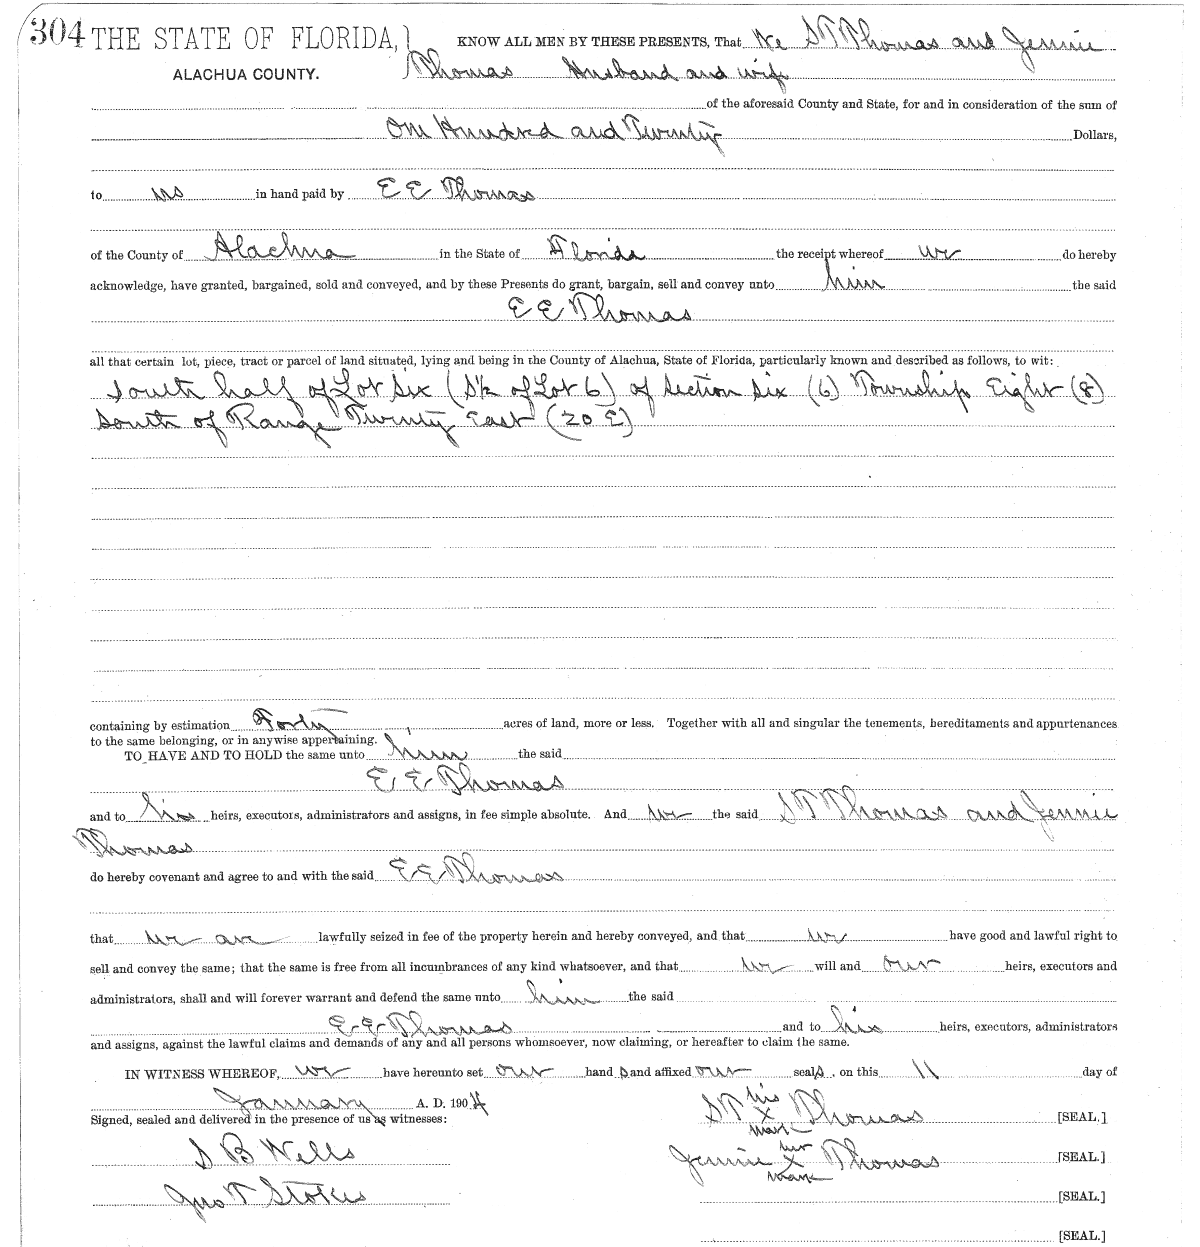 304 THE STATE OF FLORIDA, } KNOW ALL MEN BY THESE PRESENTS, That We S T Thomas and Jennie
ALACHUA COUNTY. Thomas Husband and wife
of the aforesaid County and State, for and in consideration of the sum of
One Hundred and Twenty Dollars,
to us in hand paid by E E Thomas
of the County of Alachua in the State of Florida the receipt whereof we do hereby
acknowledge, have granted, bargained, sold and conveyed, and by these Presents do grant, bargain, sell and convey unto him the said
E E Thomas
all that certain lot, piece, tract or parcel of land situated, lying and being in the County of Alachua, State of Florida, particularly known and described as follows, to wit:
South half of Lot Six (S½ of Lot 6) of Section Six (6) Township Eight (8)
South of Range Twenty East (20 E)
containing by estimation Forty acres of land, more or less. Together with all and singular the tenements, hereditaments and appurtenances
to the same belonging, or in anywise appertaining.
TO HAVE AND TO HOLD the same unto him the said
E E Thomas
and to his heirs, executors, administrators and assigns, in fee simple absolute. And we the said S T Thomas and Jennie
Thomas
do hereby covenant and agree to and with the said E E Thomas
that we are lawfully seized in fee of the property herein and hereby conveyed, and that we have good and lawful right to
sell and convey the same; that the same is free from all incumbrances of any kind whatsoever, and that we will and our heirs, executors and
administrators, shall and will forever warrant and defend the same unto him the said
E E Thomas and to his heirs, executors, administrators
and assigns, against the lawful claims and demands of any and all persons whomsoever, now claiming, or hereafter to claim the same.
IN WITNESS WHEREOF, we have hereunto set our hand s and affixed our seal s, on this 11 day of
January A. D. 1904
Signed, sealed and delivered in the presence of us as witnesses:
S T his x mark Thomas [SEAL.]
S B Wells
Jennie her x mark Thomas [SEAL.]
Jno T Stokes [SEAL.]
[SEAL.]